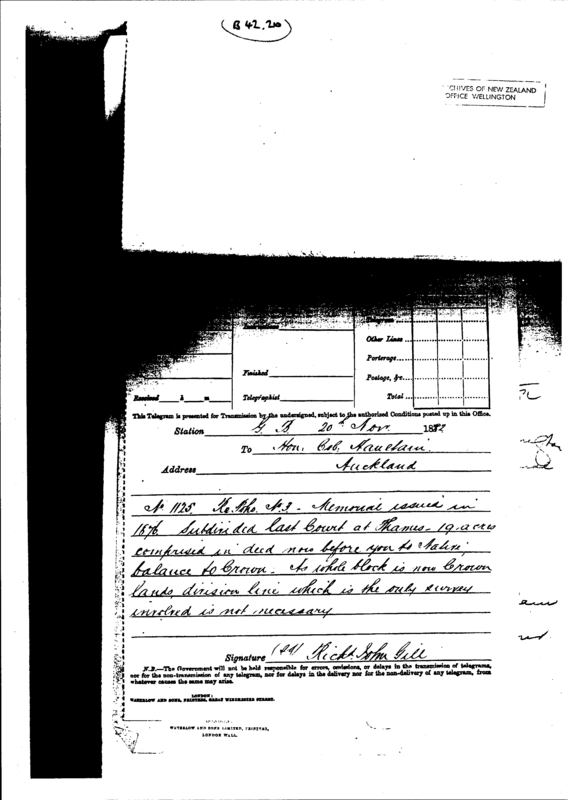 B 42.210
CHIVES OF NEW ZEALAND
OFFICE WELLINGTON
Other Lines
Porterage
Finished
Postage, &c.
Received h m
Telegraphist
Total
This Telegram is presented for Transmission by the undersigned, subject to the authorised Conditions posted up in this Office.
Station G. B 20th Nov. 1882
To Hon. Col. Haultain
Address Auckland
No 1125. No. 3 - Memorial issued in
1876 Subdivided last Court at Thames - 19 acres
comprised in deed now before you to Native
balance to Crown - As whole block is now Crown
lands, division line which is the only survey
involved is not necessary
Signature Richd John Gill
N.B.—The Government will not be held responsible for errors, omissions, or delays in the transmission of telegrams,
nor for the non-transmission of any telegram, nor for delays in the delivery nor for the non-delivery of any telegram, from
whatever causes the same may arise.
LONDON:
WATERLOW AND SONS, PRINTERS, GREAT WINCHESTER STREET.
WATERLOW AND SONS LIMITED, PRINTERS,
LONDON WALL.